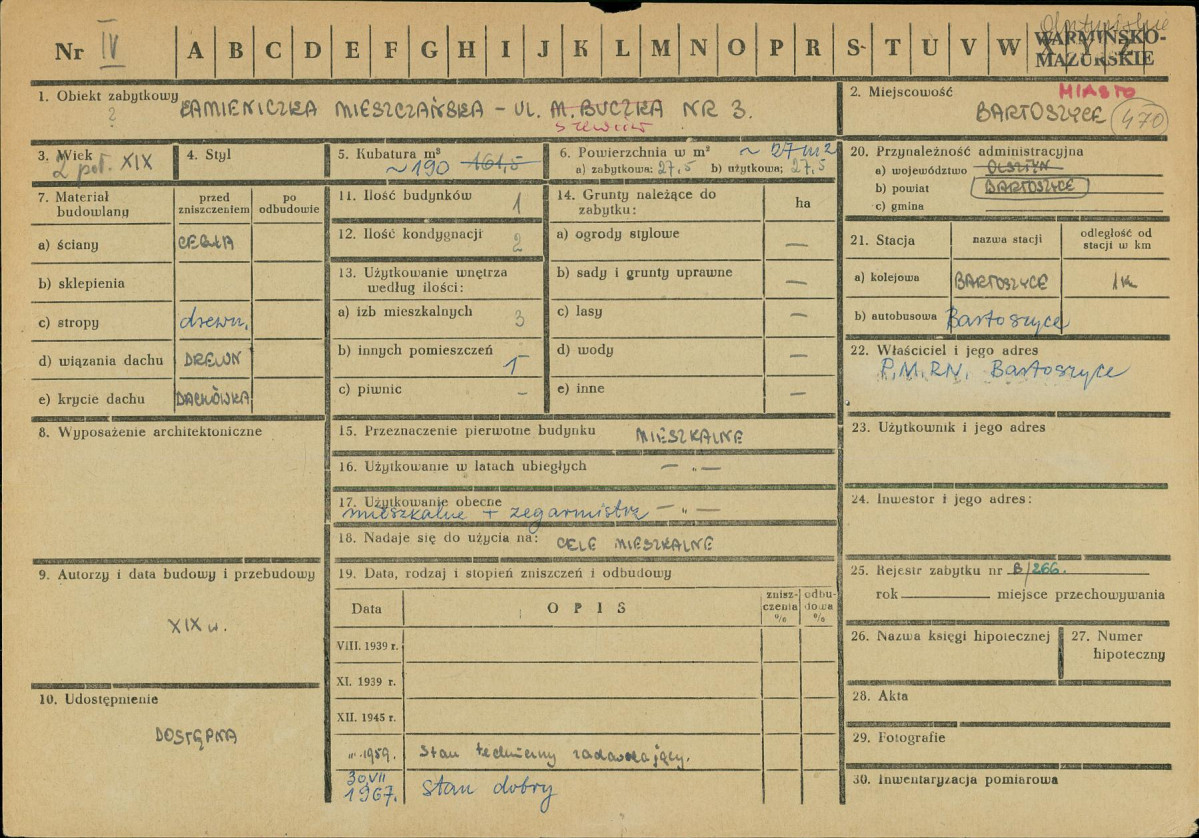 Nr IV A B C D E F G H I J K L M N O P R S T U V W X Y Z
WARMIŃSKO-
MAZURSKIE
1. Obiekt zabytkowy KAMIENICZKA MIESZCZAŃSKA – UL. M. BUCZKA NR 3.
?
2. Miejscowość MIASTO
BARTOSZYCE 470
3. Wiek
2 poł. XIX
4. Styl
5. Kubatura m³
~190 161,5
6. Powierzchnia w m² ~ 27 m2
a) zabytkowa: 27,5 b) użytkowa: 27,5
7. Materiał budowlany
przed zniszczeniem
po odbudowie
a) ściany CEGŁA
b) sklepienia
c) stropy drewn.
d) wiązania dachu DREWN
e) krycie dachu DACHÓWKA
8. Wyposażenie architektoniczne
9. Autorzy i data budowy i przebudowy
XIX w.
10. Udostępnienie
DOSTĘPNA
11. Ilość budynków 1
12. Ilość kondygnacji 2
13. Użytkowanie wnętrza
według ilości:
a) izb mieszkalnych 3
b) innych pomieszczeń 1
c) piwnic –
14. Grunty należące do
zabytku: ha
a) ogrody stylowe —
b) sady i grunty uprawne —
c) lasy —
d) wody —
e) inne —
15. Przeznaczenie pierwotne budynku MIESZKALNE
16. Użytkowanie w latach ubiegłych — „ —
17. Użytkowanie obecne — „ —
mieszkalne + zegarmistrz
18. Nadaje się do użycia na: CELE MIESZKALNE
19. Data, rodzaj i stopień zniszczeń i odbudowy
Data
OPIS
znisz-
czenia
%
odbu-
dowa
%
VIII. 1939 r.
XI. 1939 r.
XII. 1945 r.
1959. Stan techniczny zadawalający.
30 VII
1967. stan dobry
20. Przynależność administracyjna
a) województwo OLSZTYN
b) powiat BARTOSZYCE
c) gmina
21. Stacja
nazwa stacji
odległość od
stacji w km
a) kolejowa BARTOSZYCE 1 km
b) autobusowa Bartoszyce
22. Właściciel i jego adres
P.M.R.N. Bartoszyce
23. Użytkownik i jego adres
24. Inwestor i jego adres:
25. Rejestr zabytku nr B/266.
rok miejsce przechowywania
26. Nazwa księgi hipotecznej
27. Numer
hipoteczny
28. Akta
29. Fotografie
30. Inwentaryzacja pomiarowa